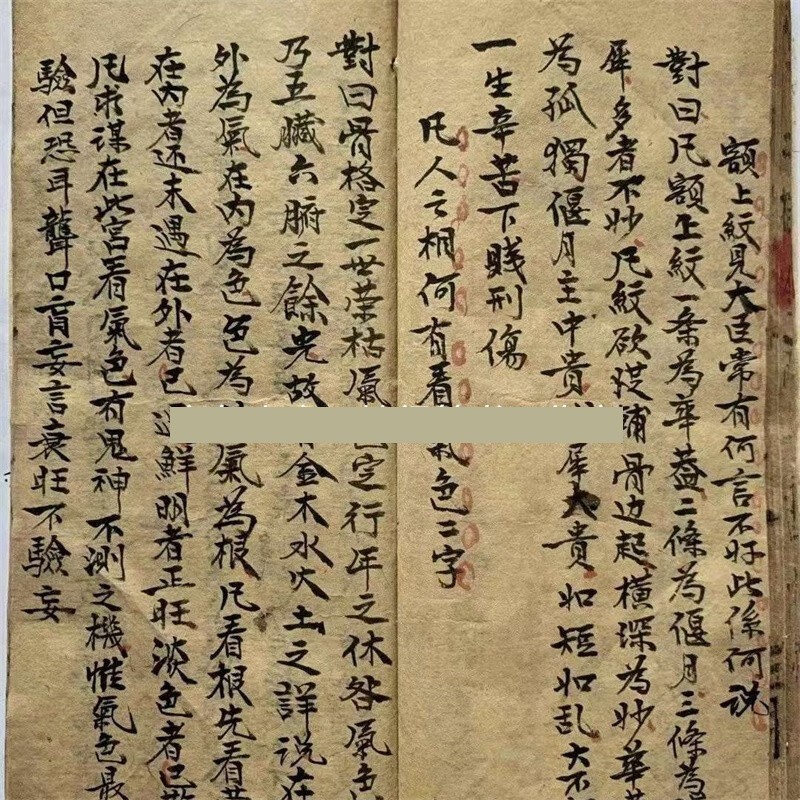 額上紋見大臣常有何言不好此係何説
對曰凡額上紋一条為華蓋二條為偃月三條為
犀多者不妙凡紋欲従輔骨边起横深為妙華
為孤獨偃月主中貴犀大貴如短如乱大不
一生辛苦下賤刑傷
凡人之相何有看氣色二字
對曰骨格定一世荣枯氣色定行年之休咎氣色
乃五臓六腑之餘光故有金木水火土之詳説在
外為氣在内為色色為氣為根凡看根先看
在内者还未遇在外者已過鮮明者正旺淡色者已散
凡求谋在此宫看氣色有鬼神不測之機惟氣色最
驗但恐耳聾口盲妄言衰旺不驗妄